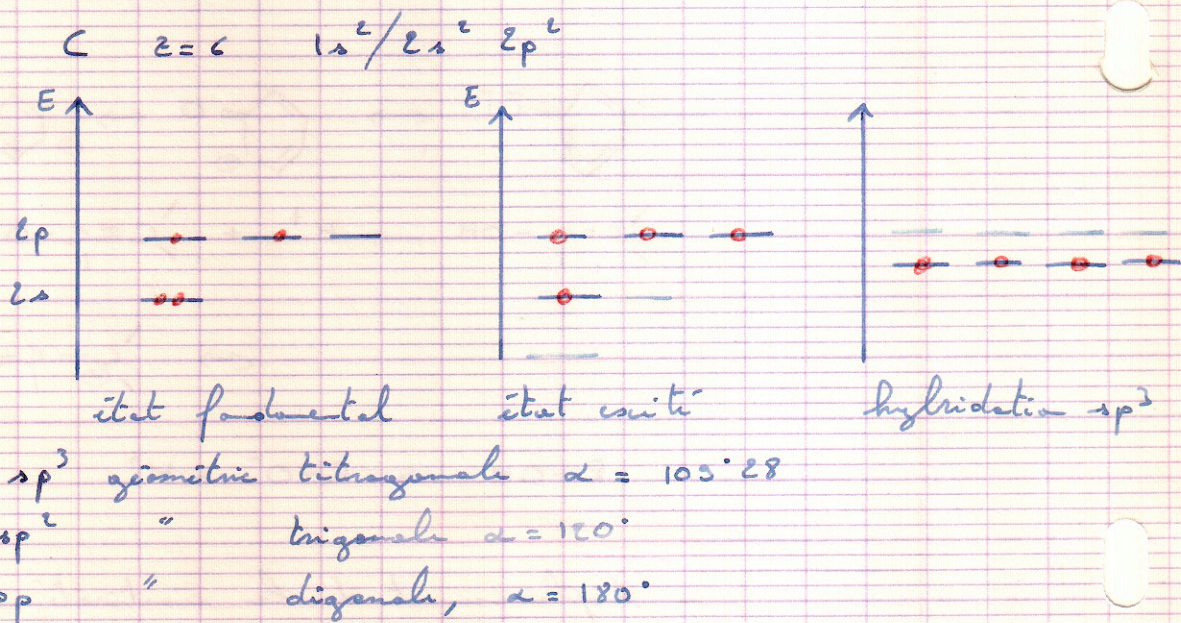 C z=6 1s²/2s² 2p²
E E
2p
2s
état fondamental état excité hybridation sp³
sp³ géométrie tétragonale α = 109°28
sp² " trigonale α = 120°
sp " digonale, α = 180°